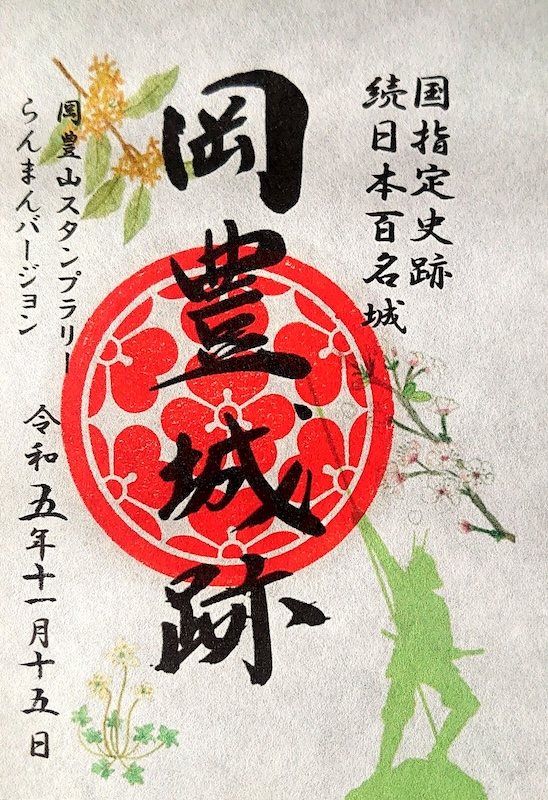 国指定史跡
続日本百名城
岡豊城跡
岡豊山スタンプラリー
らんまんバージョン
令和五年十一月十五日